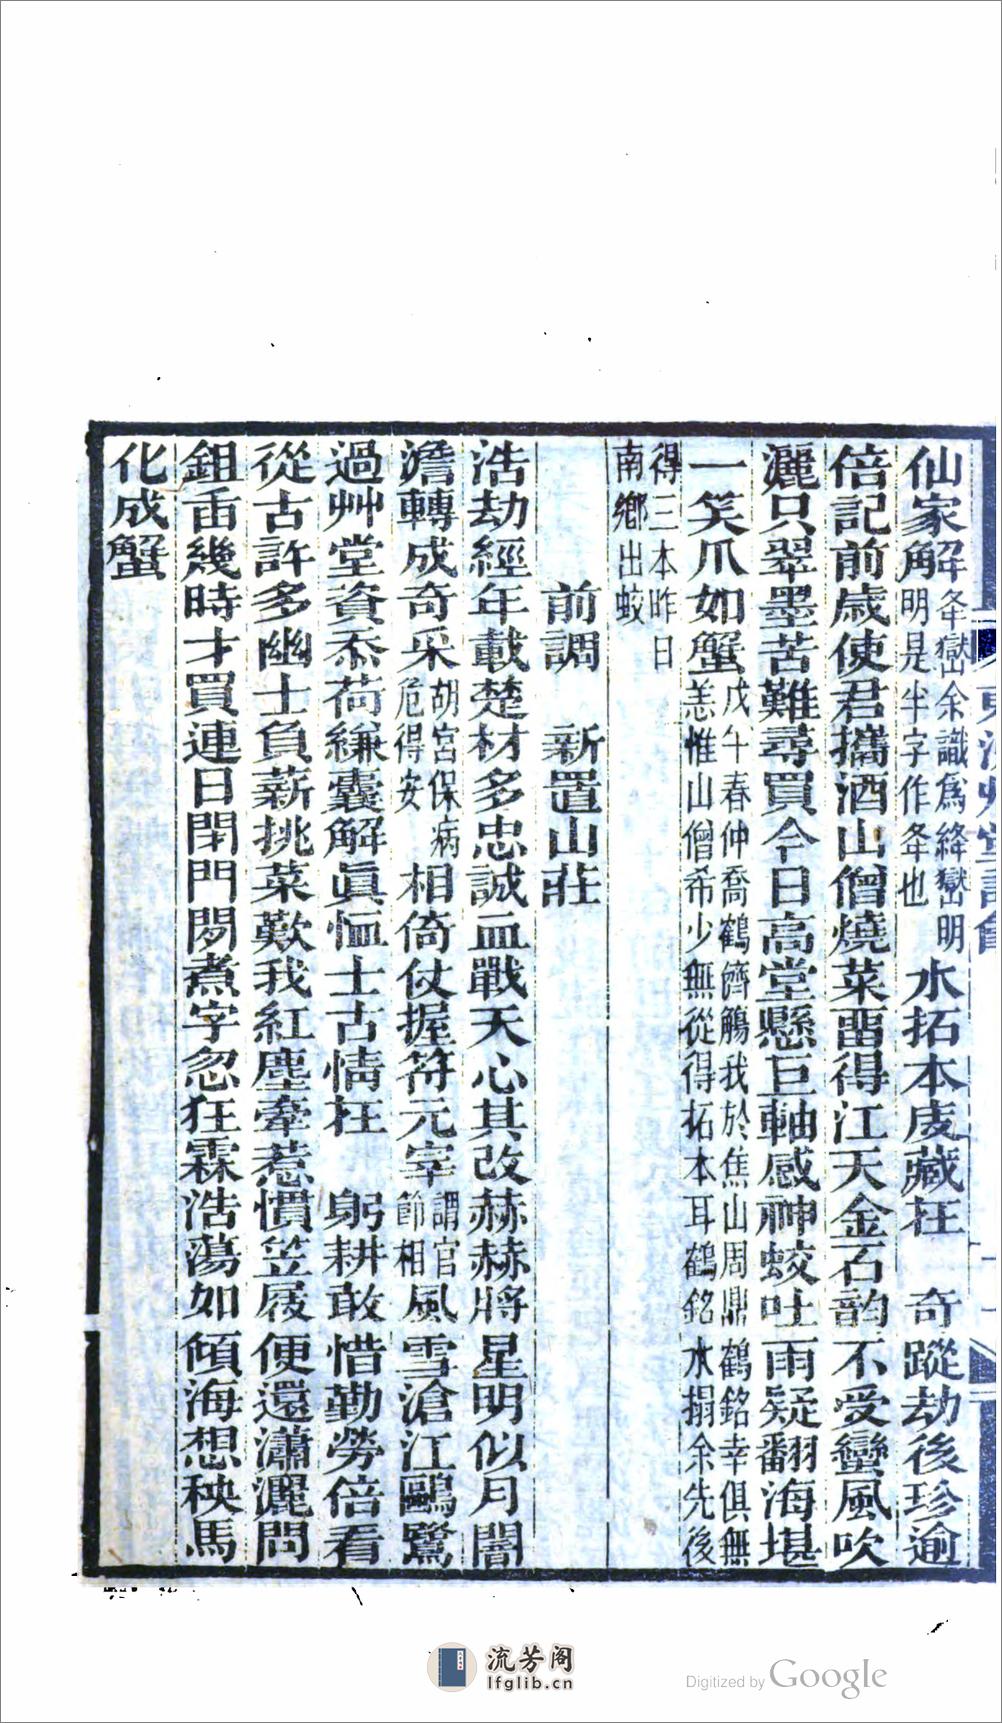 仙家解夅嶽余識爲絳嶽明明是半字作夅也水拓本庋藏在　奇蹤劫後珍逾
倍記前歲使君攜酒山僧燒菜畱得江天金石韵不受蠻風吹
灑只翠墨苦難尋買今日高堂懸巨軸感神蛟吐雨疑翻海堪
一笑爪如蟹戊午春仲喬鶴儕觴我於焦山周鼎鶴銘幸俱無恙惟山僧希少無從得拓本耳鶴銘水搨余先後
得三本昨日南鄉出蛟
前調　新置山莊
浩劫經年載楚材多忠誠血戰天心其改赫赫將星明似月闇
澹轉成奇采胡宮保病危得安相倚仗握符元宰謂官節相風雪滄江鷗鷺
過艸堂資忝荷縑囊解眞恤士古情在　躬耕敢惜勤勞倍看
從古許多幽士負薪挑菜歎我紅塵牽惹慣笠屐便還瀟灑問
鉏臿幾時才買連日閉門閑煮字忽狂霖浩蕩如傾海想秧馬
化成蟹
流芳阁
lfglib.cn
Digitized by Google